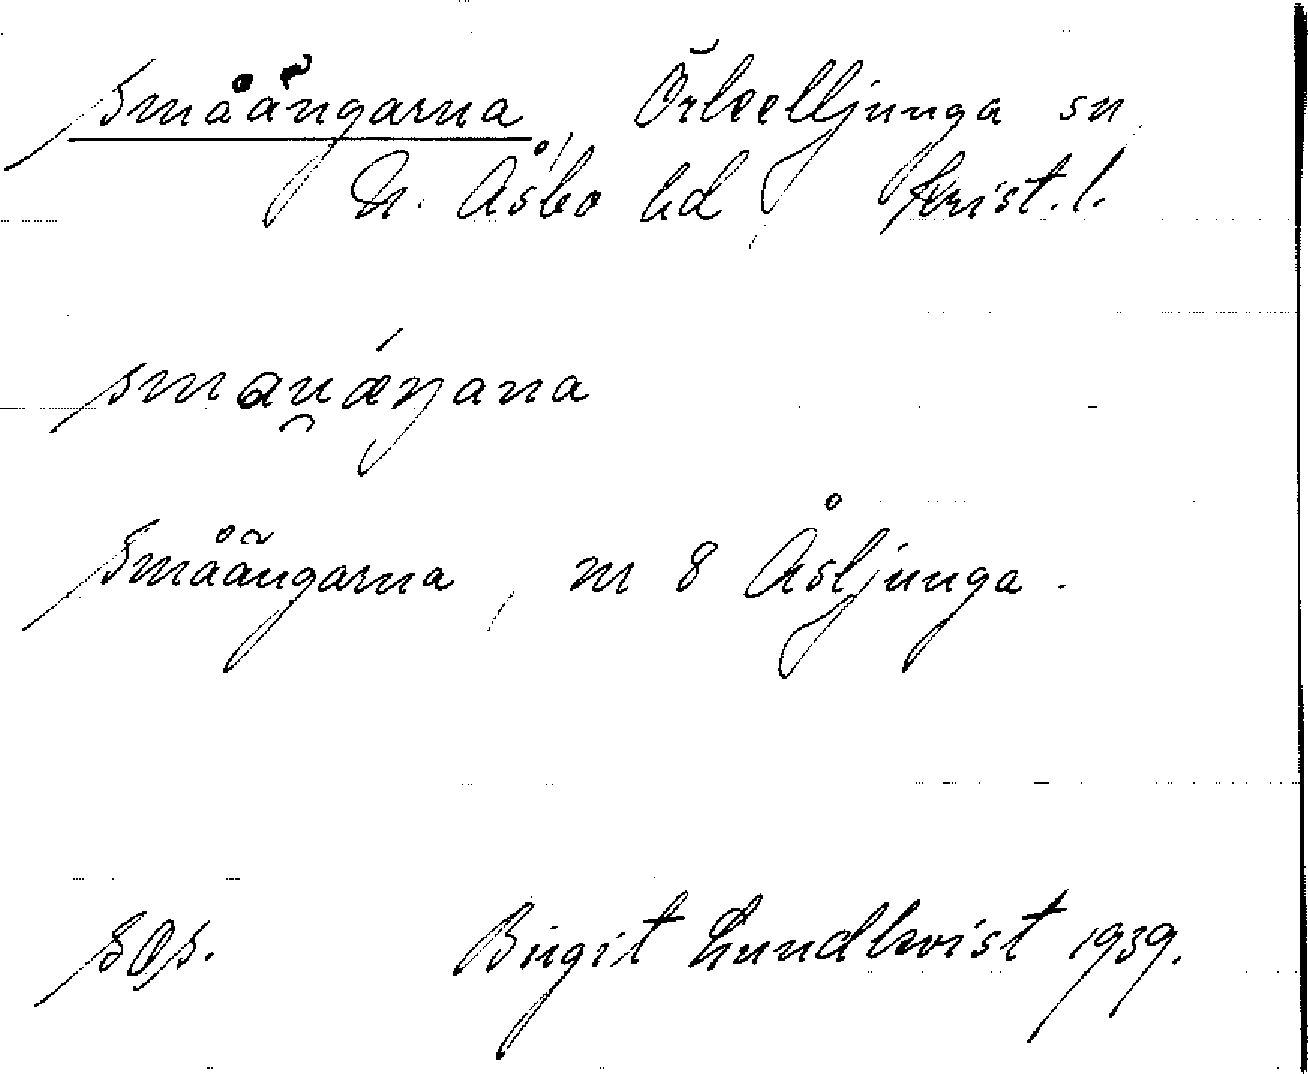 Småängarna, Örkelljunga sn,
N. Åsbo hd, Krist. l.
smau̯áŋana
Småängarna, m 8 Åsljunga.
Birgit Lundkvist 1939.